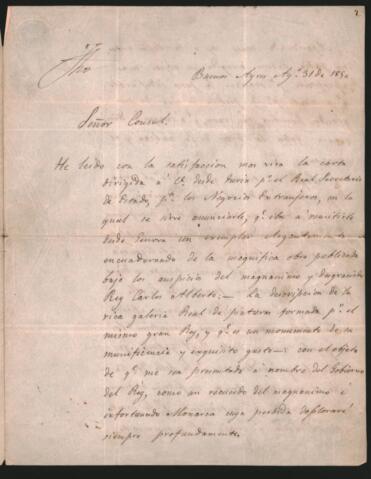 2
Buenos Ayres Ag.º 31 de 185
Señor Consul.
He leido con la satisfaccion mas viva la carta
dirigida á V. desde Turin p.r el Real Secretario
de Estado, p.a los Negocios Extranjeros, en la
cual se sirve anunciarle, q.e iba a remitirle
desde Genova un exemplar elegantemente
encuadernado de la magnifica obra publicada
bajo los auspicios del magnanimo y desgraciado
Rey Carlos Alberto:— La descripcion de la
rica galeria Real de pinturas formada p.r el
mismo gran Rey, y q.e es un monumento de su
munificencia y exquisito gusto—: con el objeto
de q.e me sea presentada á nombre del Gobierno
del Rey, como un recuerdo del magnanimo é
infortunado Monarca cuya perdida deploraré
siempre profundamente.